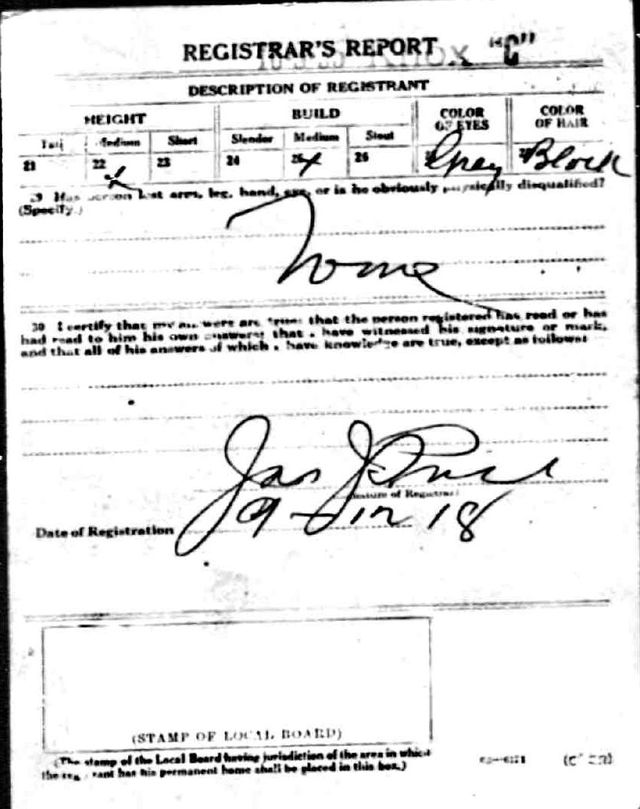 REGISTRAR'S REPORT "C"
DESCRIPTION OF REGISTRANT
HEIGHT BUILD COLOR OF EYES COLOR OF HAIR
Tall Medium Short Slender Medium Stout
21 22 ✓ 23 24 25 x 26 Grey Black
29 Has person lost arm, leg, hand, eye, or is he obviously physically disqualified?
(Specify.)
None
30 I certify that my answers are true; that the person registered has read or has
had read to him his own answers; that I have witnessed his signature or mark,
and that all of his answers of which I have knowledge are true, except as follows:
Jas J
(Signature of Registrar)
Date of Registration 9-12 18
(STAMP OF LOCAL BOARD)
(The stamp of the Local Board having jurisdiction of the area in which
the registrant has his permanent home shall be placed in this box.)